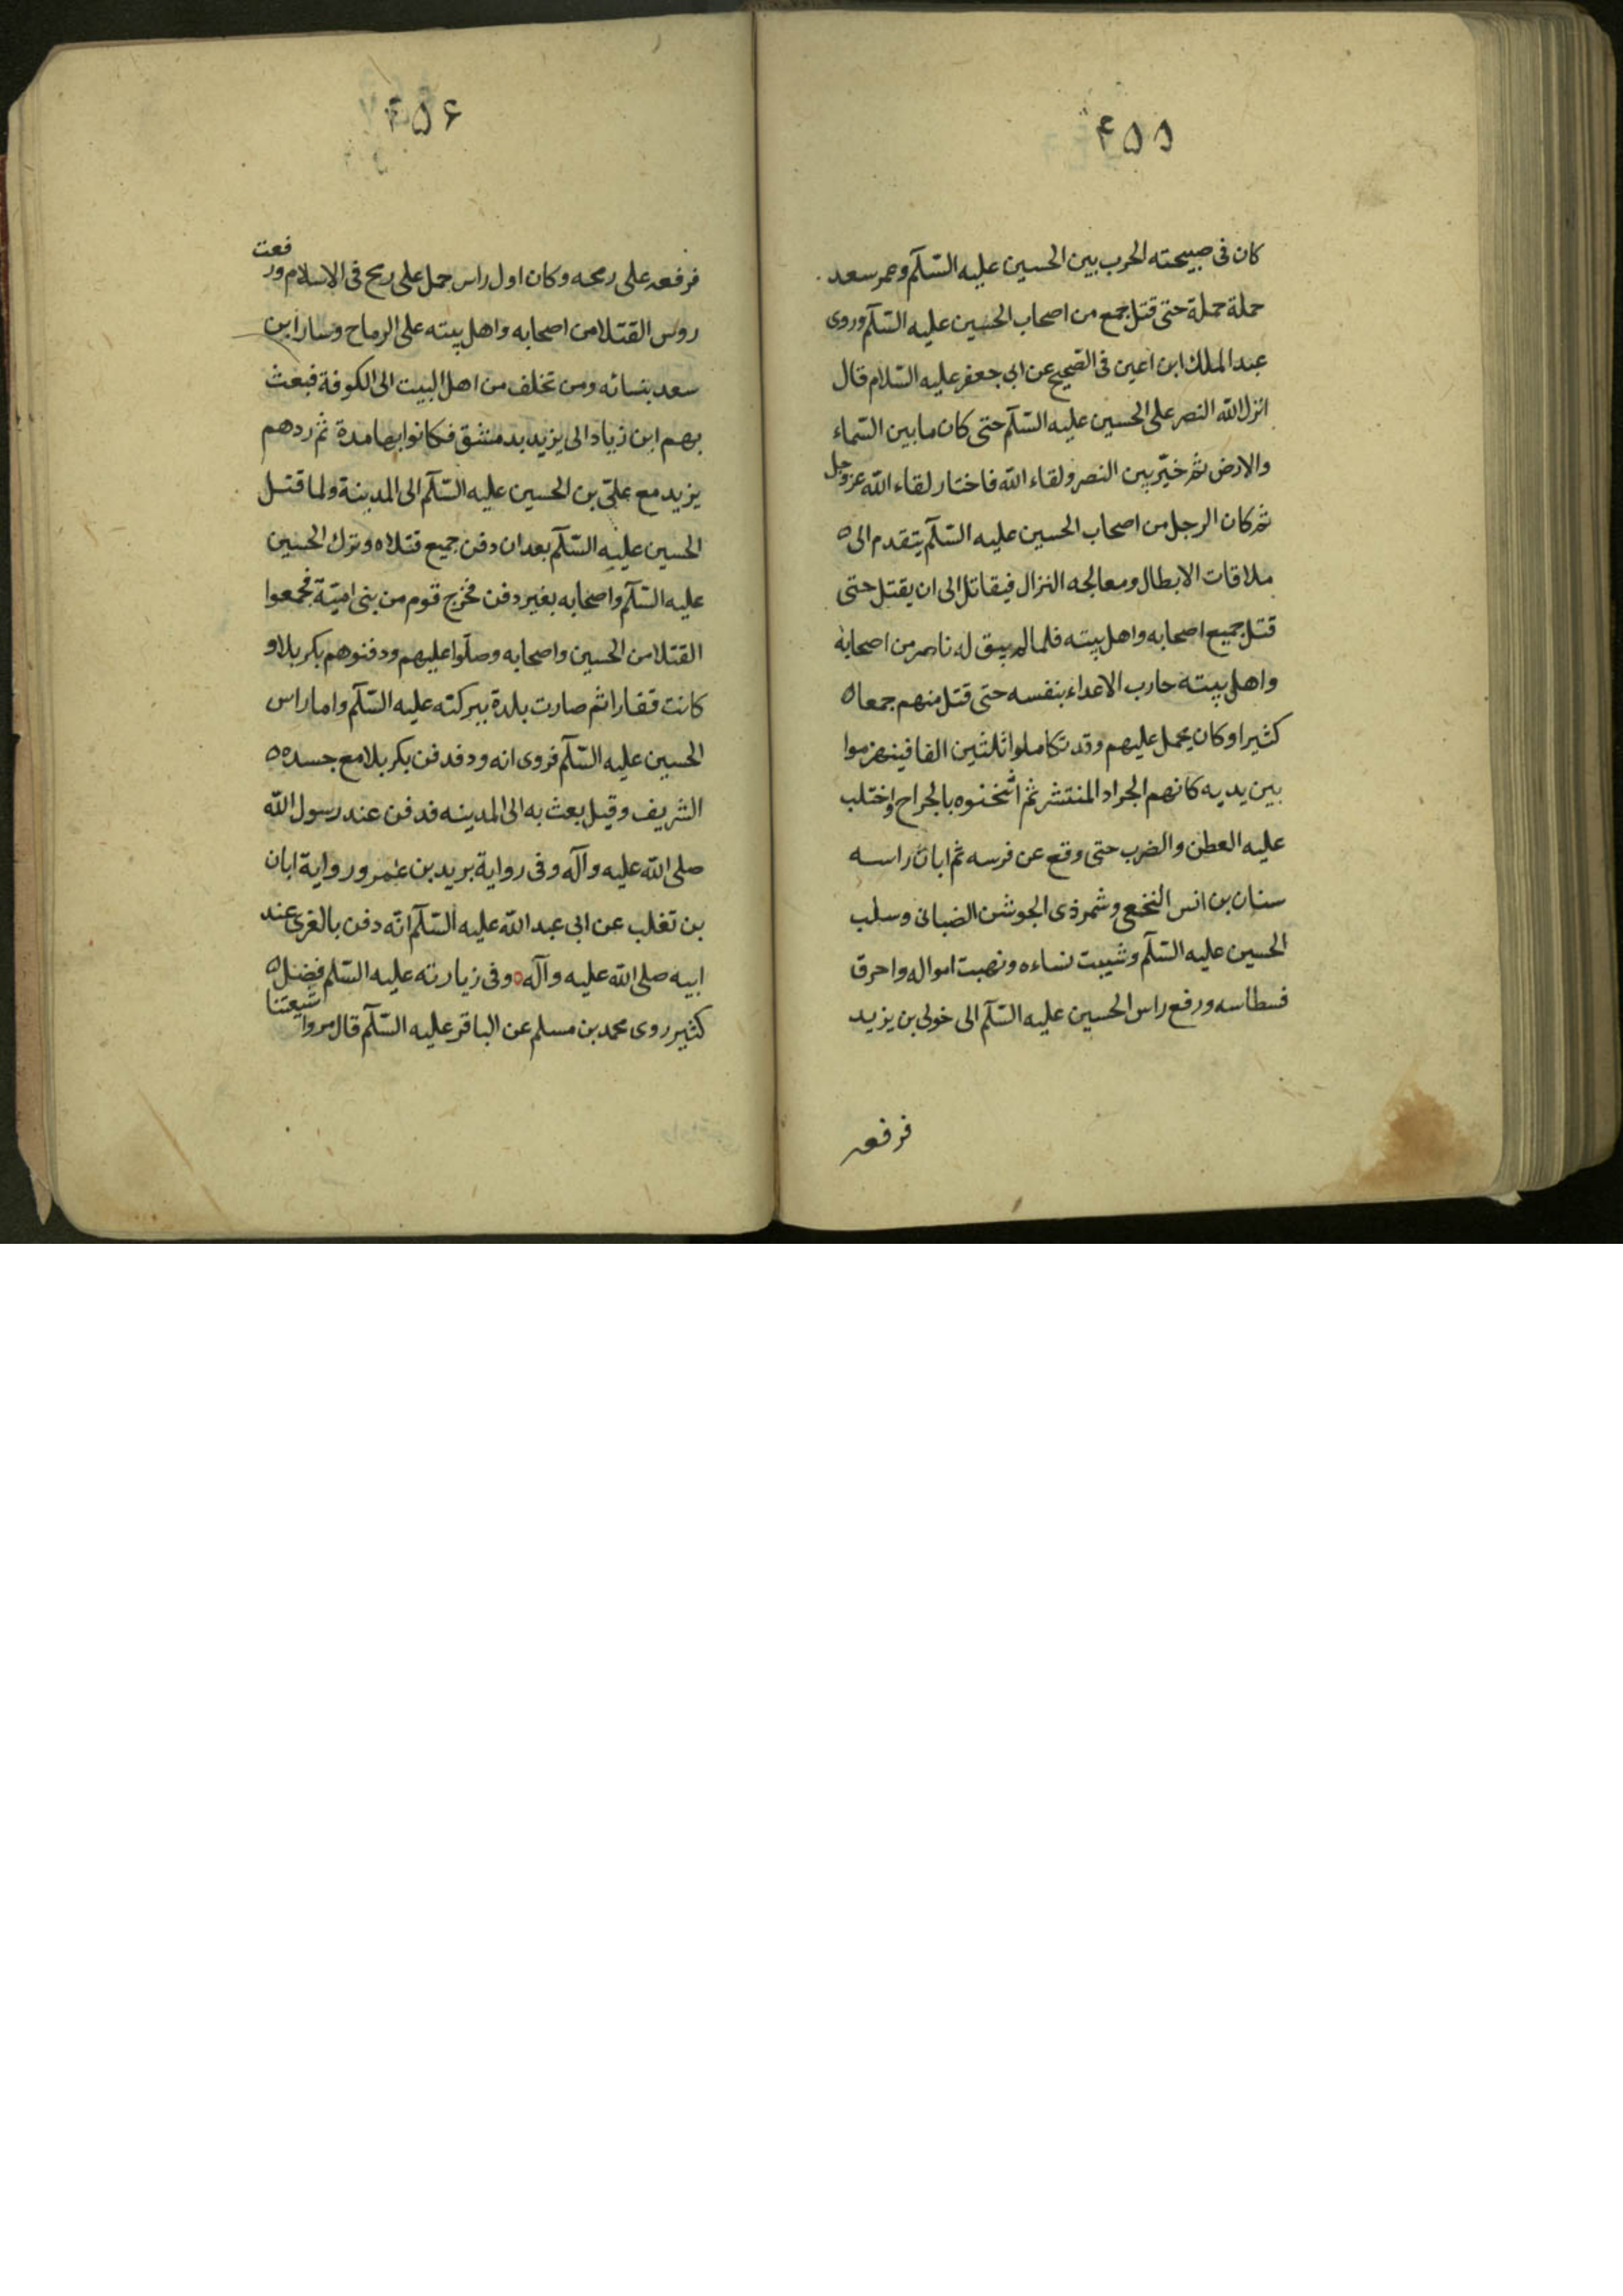 ۴۵۵
كان فى صبيحته الحرب بين الحسين عليه السّلم وعمر سعد
حملة حملة حتى قتل جمع من اصحاب الحسين عليه السّلم وروى
عبد الملك ابن اعين فى الصّحيح عن ابى جعفر عليه السّلام قال
انزل الله النصر على الحسين عليه السّلم حتى كان ما بين السّماء
والارض ثم خيّر بين النصر ولقاء الله فاختار لقاء الله عزوجل
ثم كان الرجل من اصحاب الحسين عليه السّلم يتقدم الى
ملاقات الابطال ومعالجه النزال فيقاتل الى ان يقتل حتى
قتل جميع اصحابه واهل بيته فلما لم يبق له ناصر من اصحابه
واهل بيته حارب الاعداء بنفسه حتى قتل منهم جمعا
كثيرا وكان يحمل عليهم وقد تكاملوا ثلثين الفا فينهزموا
بين يديه كانهم الجراد المنتشر ثم اثخنوه بالجراح واختلب
عليه العطن والضرب حتى وقع عن فرسه ثم ابان راسه
سنان بن انس النخعى وشمر ذى الجوشن الضبانى وسلب
الحسين عليه السّلم وشيبت نساءه ونهبت امواله واحرق
فسطاسه ورفع راس الحسين عليه السّلم الى خولى بن يزيد
فرفعه
۴۵۶
فرفعه على رمحه وكان اول راس حمل على رمح فى الاسلام ورفعت
روس القتلا من اصحابه واهل بيته على الرماح وسار ابن
سعد بنسائه ومن تخلف من اهل البيت الى الكوفة فبعث
بهم ابن زياد الى يزيد بدمشق فكانوا بها مدة ثم ردهم
يزيد مع علىّ بن الحسين عليه السّلم الى المدينة ولما قتل
الحسين عليه السّلم بعد ان دفن جميع قتلاه وترك الحسين
عليه السّلم واصحابه بغير دفن فخرج قوم من بنى اميّة فجمعوا
القتلا من الحسين واصحابه وصلّوا عليهم ودفنوهم بكربلا و
كانت قفارا ثم صارت بلدة ببركته عليه السّلم واما راس
الحسين عليه السّلم فروى انه ود فدفن بكربلا مع جسده
الشريف وقيل بعث به الى المدينه فدفن عند رسول الله
صلى الله عليه وآله وفى رواية بريد بن عمر ورواية ابان
بن تغلب عن ابى عبد الله عليه السّلم انّه دفن بالغرى عند
ابيه صلى الله عليه وآله وفى زيارته عليه السّلم فضل
كثير روى محمد بن مسلم عن الباقر عليه السّلم قال مروا شيعتنا